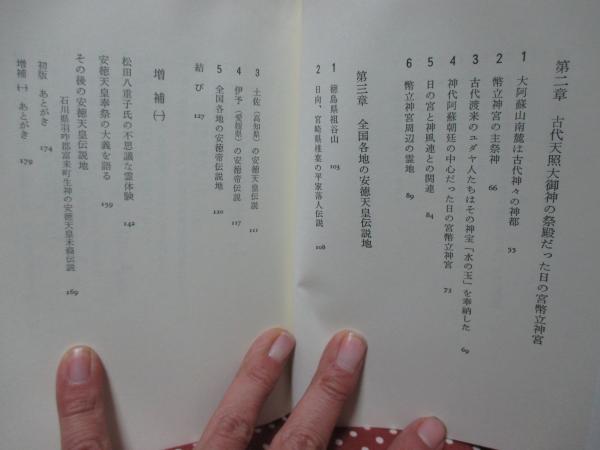 第二章　古代天照大御神の祭殿だった日の宮幣立神宮
1　大阿蘇山南麓は古代神々の神都　55
2　幣立神宮の主祭神　66
3　古代渡来のユダヤ人たちはその神宝「水の玉」を奉納した　69
4　神代阿蘇朝廷の中心だった日の宮幣立神宮　72
5　日の宮と神風連との関連　84
6　幣立神宮周辺の霊地　89
第三章　全国各地の安徳天皇伝説地
1　徳島県祖谷山　103
2　日向、宮崎県椎葉の平家落人伝説　108
3　土佐（高知県）の安徳天皇伝説　111
4　伊予（愛媛県）の安徳帝伝説　117
5　全国各地の安徳帝伝説　120
結び　127
増補㈠
松田八重子氏の不思議な霊体験　142
安徳天皇奉祭の大義を語る　159
その後の安徳天皇伝説地
石川県羽咋郡富来町生神の安徳天皇末裔伝説　169
初版　あとがき　174
増補㈠　あとがき　179